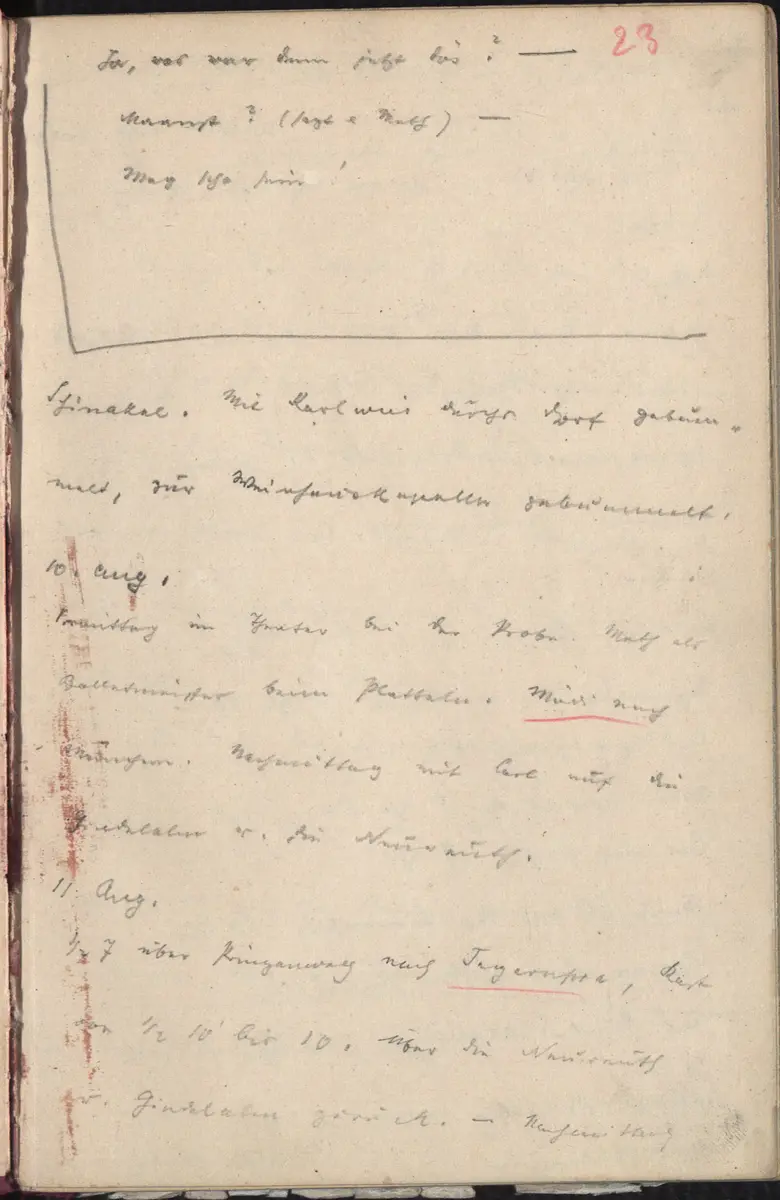 23
Ja, was war denn jetzt dös? —
Maanst? (sagt a Math) —
Mag scho sein!
Schinakel. Mit Karlweis durchs Dorf gebum-
melt, zur Weinhauskapelle gebummelt.
10. Aug.
Vormittag im Theater bei der Probe. Math als
Balletmeister beim Platteln. Mädi nach
München. Nachmittag mit Carl auf die
Gindelalm u. die Neureuth.
11. Aug.
1/2 7 über Prinzenweg nach Tegernsee, Rast
von 1/2 10 bis 10. Über die Neureuth
u. Gindelalm zurück. — Nachmittag